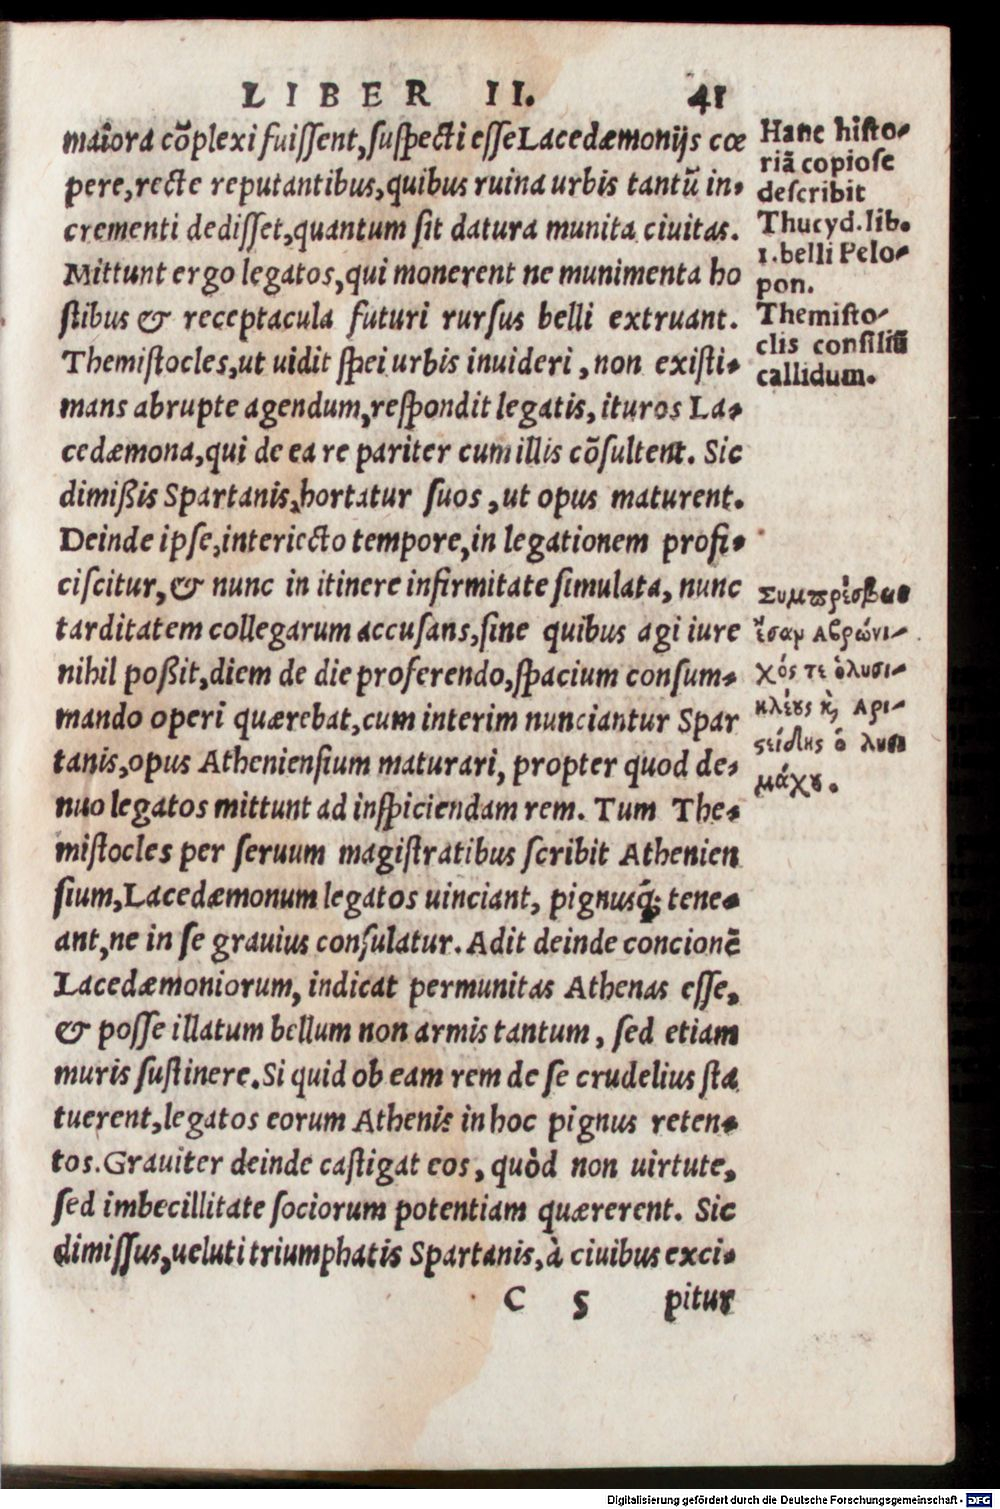 LIBER II. 41
maiora cõplexi fuissent, suspecti esse Lacedæmonijs cœ
pere, recte reputantibus, quibus ruina urbis tantũ in-
crementi dedisset, quantum sit datura munita ciuitas.
Mittunt ergo legatos, qui monerent ne munimenta ho
stibus & receptacula futuri rursus belli extruant.
Themistocles, ut uidit spei urbis inuideri, non existi-
mans abrupte agendum, respondit legatis, ituros La-
cedæmona, qui de ea re pariter cum illis cõsultent. Sic
dimißis Spartanis, hortatur suos, ut opus maturent.
Deinde ipse, interiecto tempore, in legationem profi-
ciscitur, & nunc in itinere infirmitate simulata, nunc
tarditatem collegarum accusans, sine quibus agi iure
nihil poßit, diem de die proferendo, spacium consum-
mando operi quærebat, cum interim nunciantur Spar
tanis, opus Atheniensium maturari, propter quod de-
nuo legatos mittunt ad inspiciendam rem. Tum The-
mistocles per seruum magistratibus scribit Athenien
sium, Lacedæmonum legatos uinciant, pignusq́; tene-
ant, ne in se grauius consulatur. Adit deinde concionẽ
Lacedæmoniorum, indicat permunitas Athenas esse,
& posse illatum bellum non armis tantum, sed etiam
muris sustinere. Si quid ob eam rem de se crudelius sta
tuerent, legatos eorum Athenis in hoc pignus reten-
tos. Grauiter deinde castigat eos, quòd non uirtute,
sed imbecillitate sociorum potentiam quærerent. Sic
dimissus, ueluti triumphatis Spartanis, à ciuibus exci-
C 5 pitur
Hanc histo-
riã copiose
describit
Thucyd. lib.
1. belli Pelo-
pon.
Themisto-
clis consiliũ
callidum.
Συμπρέσβεις
ἦσαν Αβρώνι-
χός τε ὁ λυσι-
κλέους καὶ Αρι-
στείδης ὁ λυσι
μάχου.
Digitalisierung gefördert durch die Deutsche Forschungsgemeinschaft - DFG